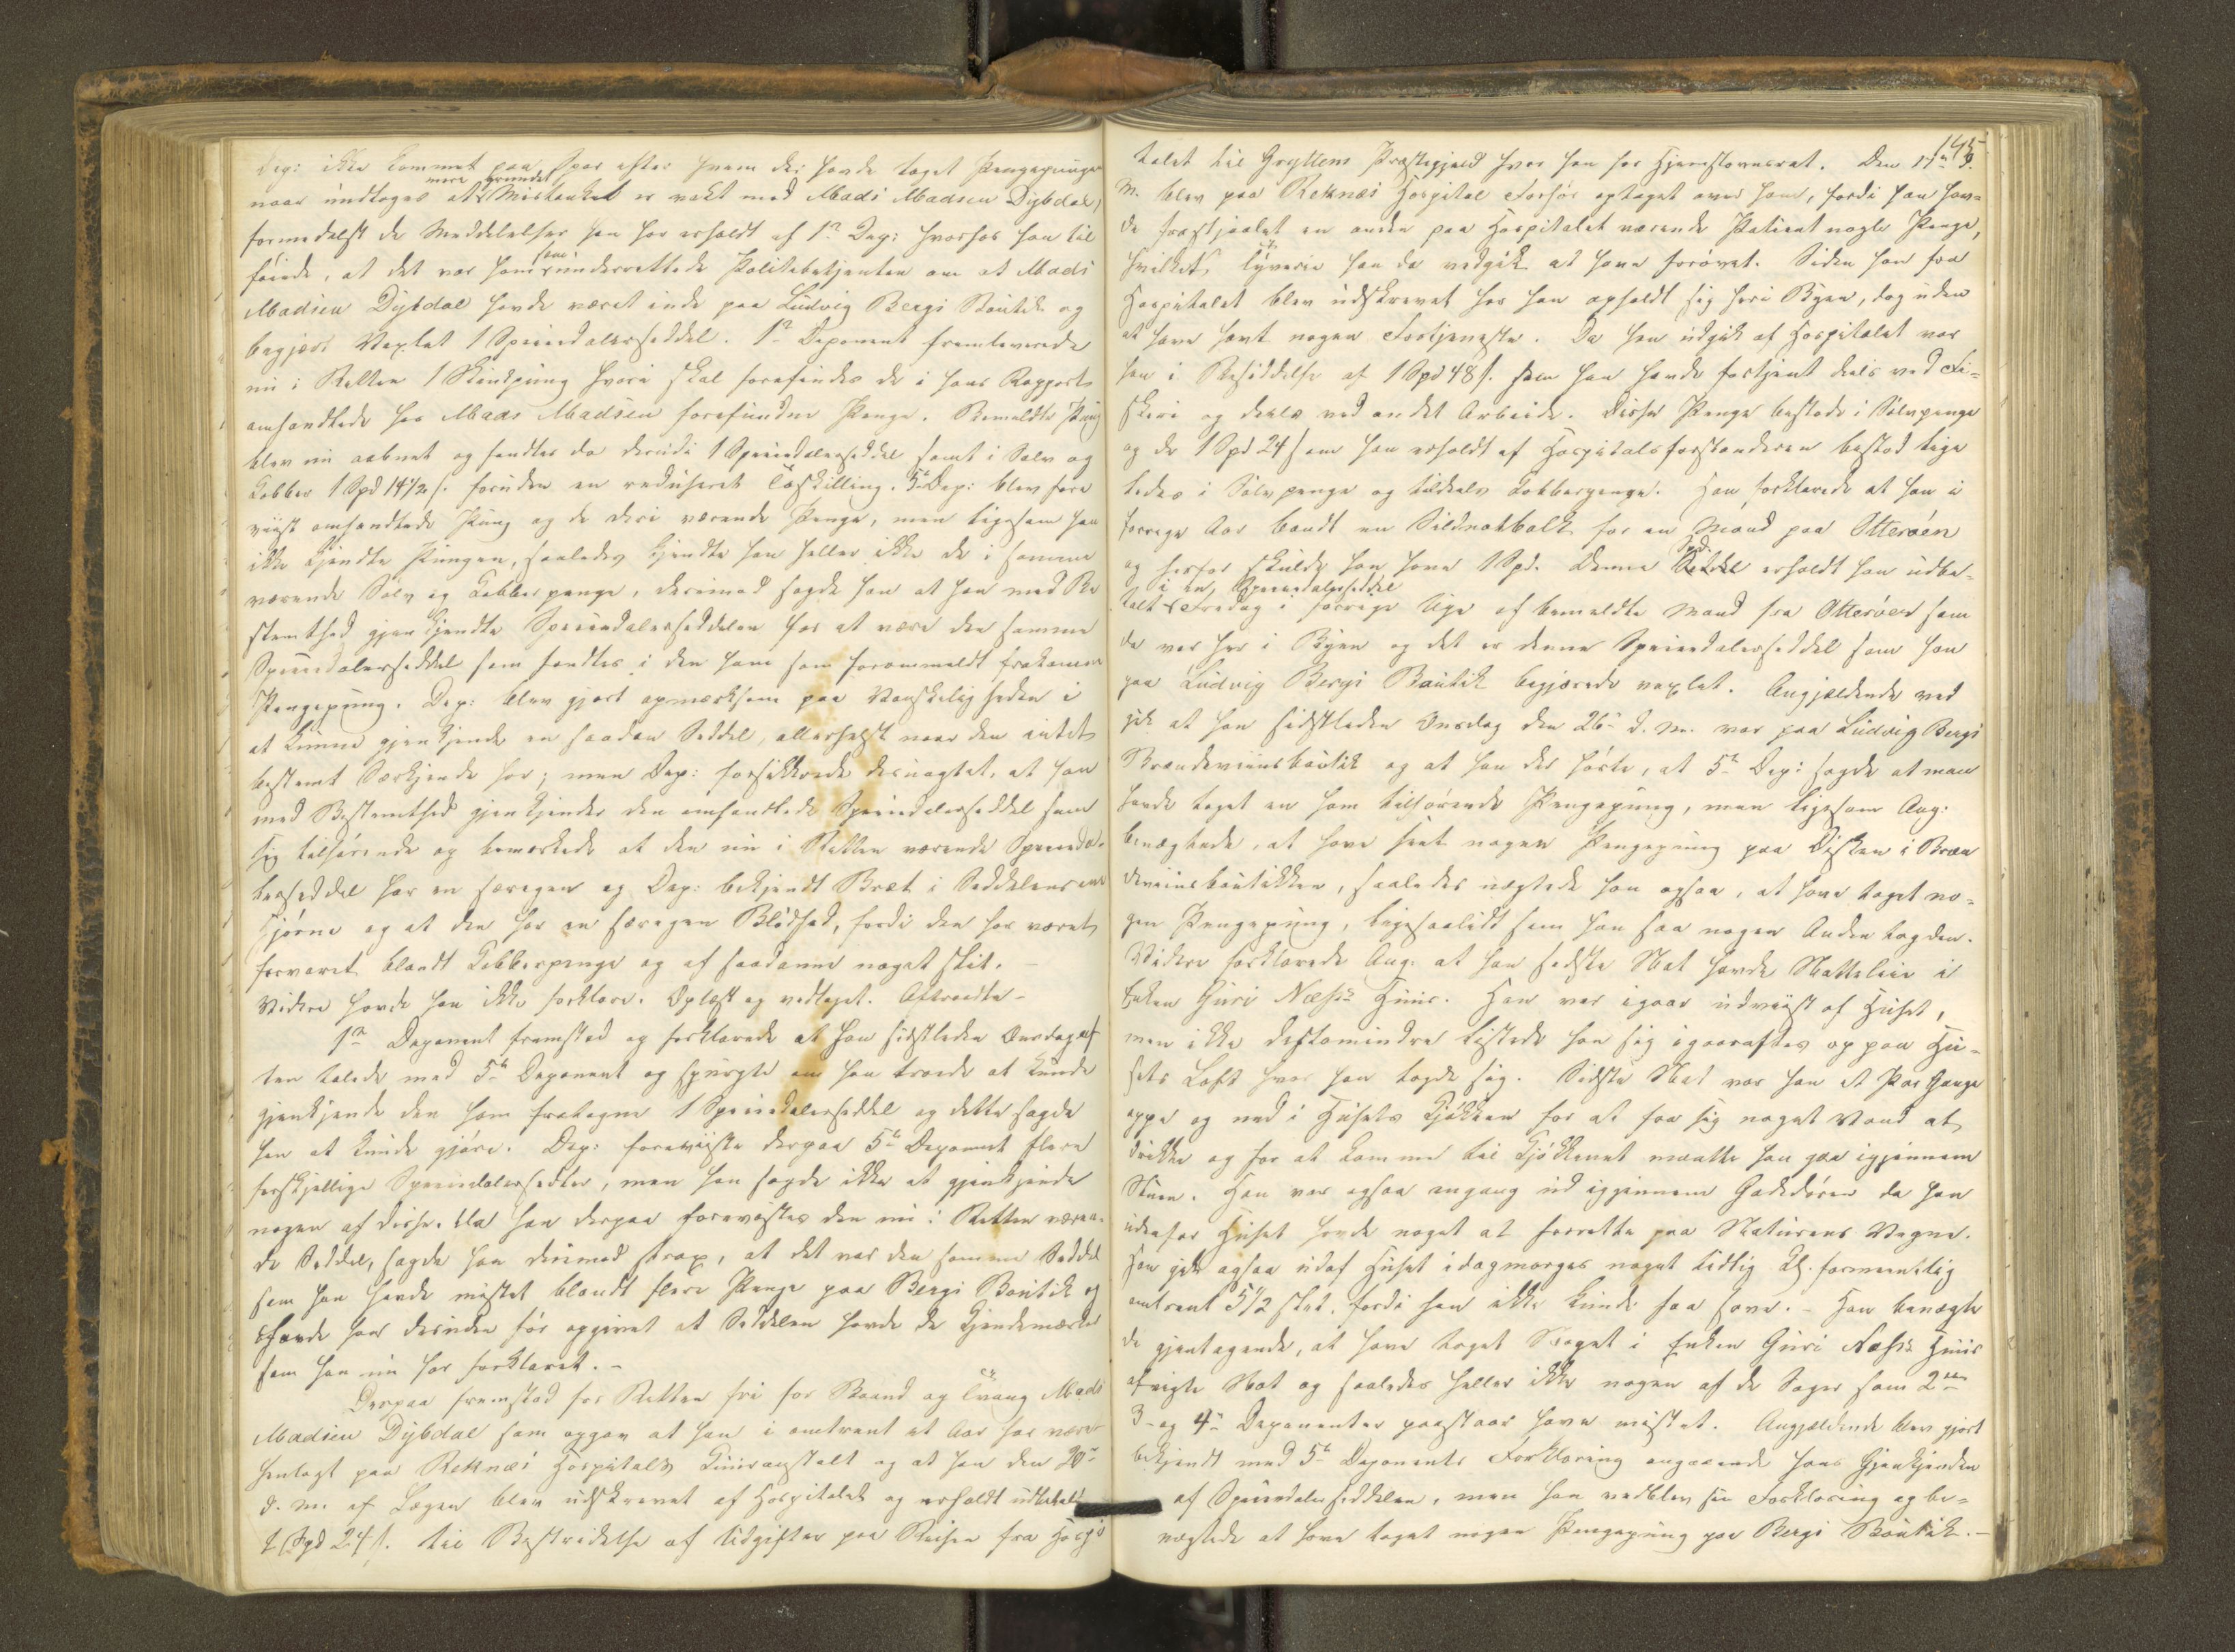 Dep: ikke kommet paa Spor efter hvem der havde taget Pengepungen
naar undtages at mere grundet Mistanke er vakt mod Mads Madsen Dybdal,
formedelst de Meddelelser han har erholdt af 1ste Dep: hvorhos han til
føiede, at det var ham som underrettede Politibetjenten om at Mads
Madsen Dybdal havde været inde paa Ludvig Bergs Boutik og
begjært Vexlet 1 Speciedalerseddel. 1ste Deponent fremleverede
nu i Retten 1 Skindpung hvori skal forefindes de i hans Rapport
omhandlede hos Mads Madsen forefundne Penge. Bemeldte Pung
blev nu aabnet og fandtes da deri 1 Speciedalerseddel samt i Sølv og
Kobber 1 Spd 14 1/2 s. foruden en reduseret Toskilling. 5te Dep: blev fore
viist omhandlede Pung og de deri værende Penge, men ligesom han
ikke kjendte Pungen, saaledes kjendte han heller ikke de i samme
værende Sølv og Kobberpenge, derimod sagde han at han med Be
stemthed gjenkjendte Speciedalerseddelen for at være den samme
Speciedalerseddel som fandtes i den ham som forommeldt frakomne
Pengepung. Dep: blev gjort opmærksom paa Vanskeligheden i
at kunne gjenkjende en saadan Seddel, allerhelst naar den intet
bestemt Særkjende har; men Dep: forsikkrede desuagtet, at han
med Bestemthed gjenkjender den omhandlede Speciedalerseddel som
sig tilhørende og bemærkede at den nu i Retten værende Specieda-
lerseddel har en særegen og Dep: bekjendt Bræt i Seddelens ene
Hjørne og at den har en særegen Blødhed, fordi den har været
forvaret blandt Kobberpenge og af saadanne noget slidt. –
Videre havde han ikke forklare. Oplæst og vedtaget. Aftraadte –
1ste Deponent fremstod og forklarede at han sidstleden Onsdag af
ten talede med 5te Deponent og spurgte om han troede at kunde
gjenkjende den ham fratagne 1 Speciedalerseddel og dette sagde
han at kunde gjøre. Dep: foreviiste derpaa 5te Deponent flere
forskjellige Speciedalersedler, men han sagde ikke at gjenkjende
nogen af disse. Da han derpaa forevistes den nu i Retten væren-
de Seddel, sagde han derimod strax, at det var den samme Seddel
som han havde mistet blandt flere Penge paa Bergs Boutik og
havde han desuden før opgivet at Seddelen havde de Kjendemærker
som han nu har forklaret. –
Derpaa fremstod for Retten fri for Baand og Tvang Mads
Madsen Dybdal som opgav at han i omtrent et Aar har været
henlagt paa Reknæs Hospitals Kuuranstalt og at han den 20de
d. M. af Lægen blev udskrevet af Hospitalet og erholdt udbetalt
1 Spd 24 s. til Bestridelse af Udgifter paa Reisen fra Hospi
145
talet til Gryttens Præstegjæld hvor han har Hjemstavnsret. Den 17de d.
M. blev paa Reknæs Hospital Forhør optaget over ham, fordi han hav-
de frastjaalet en anden paa Hospitalet værende Patient nogle Penge,
hvilket Tyverie han da vedgik at have forøvet. Siden han fra
Hospitalet blev udskrevet har han opholdt sig her i Byen, dog uden
at have havt nogen Fortjeneste. Da han udgik af Hospitalet var
han i Besiddelse af 1 Spd 48 s. som han havde fortjent deels ved Fi-
skeri og deels ved andet Arbeide. Disse Penge bestode i Sølvpenge
og de 1 Spd 24 s som han erholdt af Hospitalsforstanderen bestod lige
ledes i Sølvpenge og tildeels Kobberpenge. Han forklarede at han i
forrige Aar bandt en Sildnotbolk for en Mand paa Otterøen
og herfor skulde han have 1 Spd. Denne Spd. erholdt han udbe-
talt i en Speciedalerseddel Fredag i forrige Uge af bemeldte Mand fra Otterøen som
da var her i Byen og det er denne Speciedalerseddel som han
paa Ludvig Bergs Boutik begjærede vexlet. Angjældende ved
gik at han sidstleden Onsdag den 26de d. M. var paa Ludvig Bergs
Brændeviinsboutik og at han der hørte, at 5te Dep: sagde at man
havde taget en ham tilhørende Pengepung, men ligesom Ang:
benægtede, at have seet nogen Pengepung paa Disken i Bræn
deviinsboutikken, saaledes nægtede han ogsaa, at have taget no-
gen Pengepung, ligesaalidt som han saa nogen Anden tog den.
Videre forklarede Ang: at han sidste Nat havde Natteleie i
Enken Guri Næss's Huus. Han var igaar udviist af Huset,
men ikke destomindre listede han sig igaaraftes op paa Hu-
sets Loft hvor han lagde sig. Sidste Nat var han et Par Gange
oppe og ned i Husets Kjøkken for at faa sig noget Vand at
drikke og for at komme til Kjøkkenet maatte han gaa igjennem
Stuen. Han var ogsaa engang ud igjennem Gadedøren da han
udenfor Huset havde noget at forrette paa Naturens Vegne.
Han gik ogsaa udaf Huset idagmorges noget tidlig Kl. formeentlig
omtrent 5 1/2 slet. fordi han ikke kunde faa sove. – Han benægte
de gjentagende, at have taget Noget i Enken Guri Næss's Huus
afvigte Nat og saaledes heller ikke nogen af de Sager som 2den
3die og 4de Deponenter paastaar have mistet. Angjældende blev gjort
bekjendt med 5te Deponents Forklaring angaaende hans Gjenkjenden
af Speciedalerseddelen, men han vedblev sin Forklaring og be-
nægtede at have taget nogen Pengepung paa Bergs Boutik. –